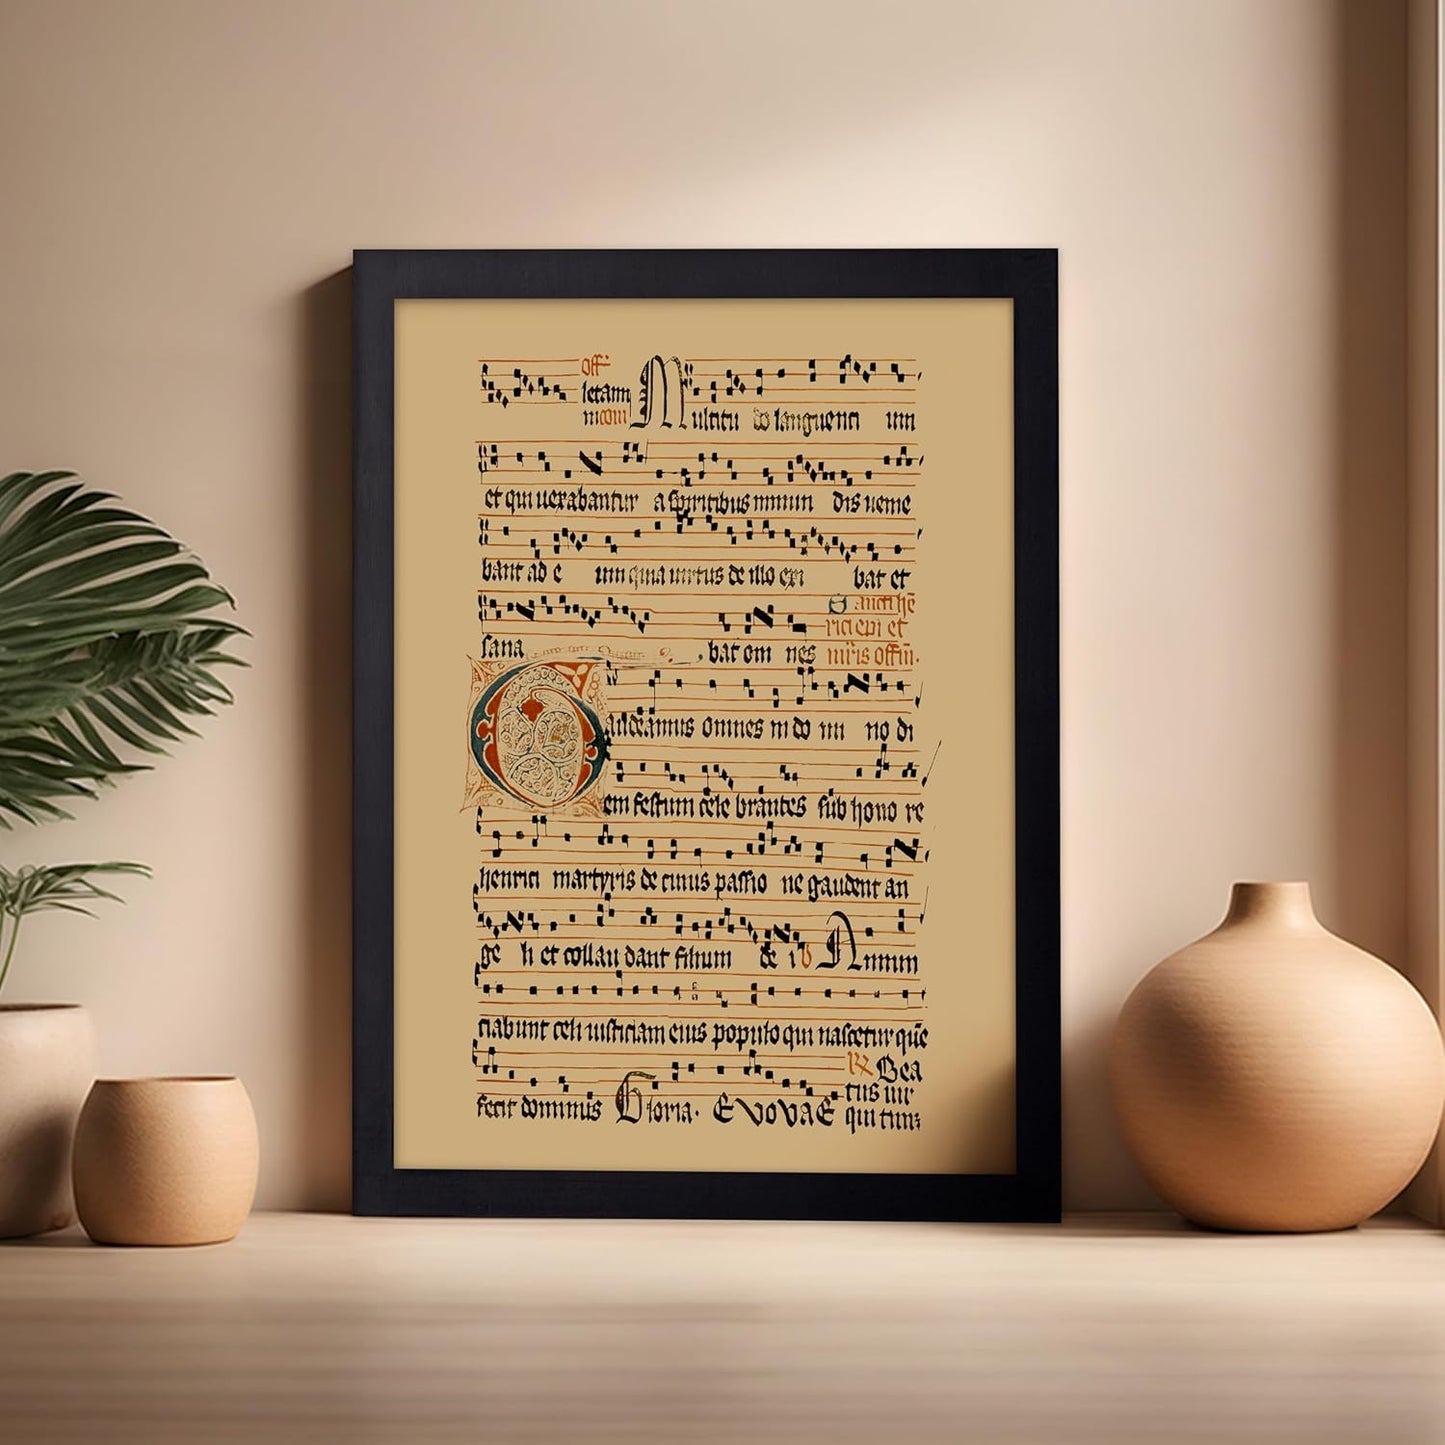 Off
letamini
Multitu do languenti um
et qui vexabantur a spiritibus immun dis venie
bant ad e um quia virtus de illo exi bat et
Sancti hē
rici epi et
sana bat om nes mr̄is offm̄.
Gaudeamus omnes in do mi no di
em festum cele brantes sub hono re
henrici martyris de cuius passio ne gaudent an
ge li et collau dant filium de i V Annun
ciabunt celi iusticiam eius populo qui nascetur quē
fecit dominus Gloria. EVOVAE R Bea
tus vir
qui tim;